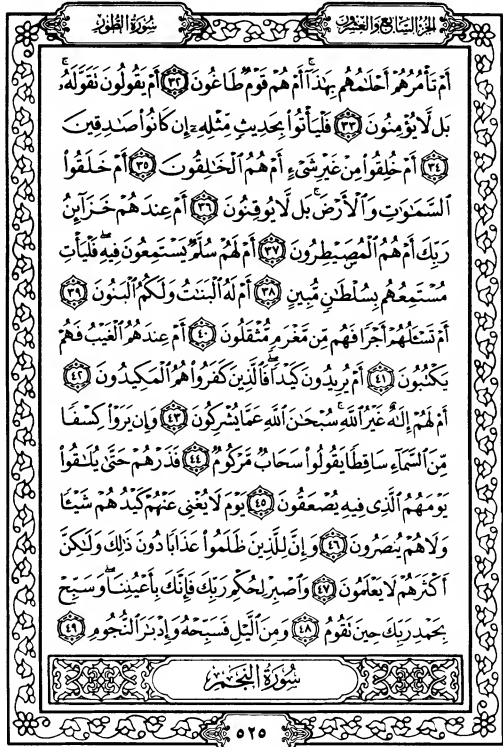 سُورَةُ الطُّورِ الجُزْءُ السَّابِعُ وَالعِشْرُونَ
أَمْ تَأْمُرُهُمْ أَحْلَٰمُهُم بِهَٰذَآ ۚ أَمْ هُمْ قَوْمٌ طَاغُونَ ٣٢ أَمْ يَقُولُونَ تَقَوَّلَهُۥ ۚ
بَل لَّا يُؤْمِنُونَ ٣٣ فَلْيَأْتُوا۟ بِحَدِيثٍ مِّثْلِهِۦٓ إِن كَانُوا۟ صَٰدِقِينَ
٣٤ أَمْ خُلِقُوا۟ مِنْ غَيْرِ شَىْءٍ أَمْ هُمُ ٱلْخَٰلِقُونَ ٣٥ أَمْ خَلَقُوا۟
ٱلسَّمَٰوَٰتِ وَٱلْأَرْضَ ۚ بَل لَّا يُوقِنُونَ ٣٦ أَمْ عِندَهُمْ خَزَآئِنُ
رَبِّكَ أَمْ هُمُ ٱلْمُصَۣيْطِرُونَ ٣٧ أَمْ لَهُمْ سُلَّمٌ يَسْتَمِعُونَ فِيهِ ۖ فَلْيَأْتِ
مُسْتَمِعُهُم بِسُلْطَٰنٍ مُّبِينٍ ٣٨ أَمْ لَهُ ٱلْبَنَٰتُ وَلَكُمُ ٱلْبَنُونَ ٣٩
أَمْ تَسْـَٔلُهُمْ أَجْرًا فَهُم مِّن مَّغْرَمٍ مُّثْقَلُونَ ٤٠ أَمْ عِندَهُمُ ٱلْغَيْبُ فَهُمْ
يَكْتُبُونَ ٤١ أَمْ يُرِيدُونَ كَيْدًا ۖ فَٱلَّذِينَ كَفَرُوا۟ هُمُ ٱلْمَكِيدُونَ ٤٢
أَمْ لَهُمْ إِلَٰهٌ غَيْرُ ٱللَّهِ ۚ سُبْحَٰنَ ٱللَّهِ عَمَّا يُشْرِكُونَ ٤٣ وَإِن يَرَوْا۟ كِسْفًا
مِّنَ ٱلسَّمَآءِ سَاقِطًا يَقُولُوا۟ سَحَابٌ مَّرْكُومٌ ٤٤ فَذَرْهُمْ حَتَّىٰ يُلَٰقُوا۟
يَوْمَهُمُ ٱلَّذِى فِيهِ يُصْعَقُونَ ٤٥ يَوْمَ لَا يُغْنِى عَنْهُمْ كَيْدُهُمْ شَيْـًٔا
وَلَا هُمْ يُنصَرُونَ ٤٦ وَإِنَّ لِلَّذِينَ ظَلَمُوا۟ عَذَابًا دُونَ ذَٰلِكَ وَلَٰكِنَّ
أَكْثَرَهُمْ لَا يَعْلَمُونَ ٤٧ وَٱصْبِرْ لِحُكْمِ رَبِّكَ فَإِنَّكَ بِأَعْيُنِنَا ۖ وَسَبِّحْ
بِحَمْدِ رَبِّكَ حِينَ تَقُومُ ٤٨ وَمِنَ ٱلَّيْلِ فَسَبِّحْهُ وَإِدْبَٰرَ ٱلنُّجُومِ ٤٩
سُورَةُ النَّجْمِ
٥٢٥